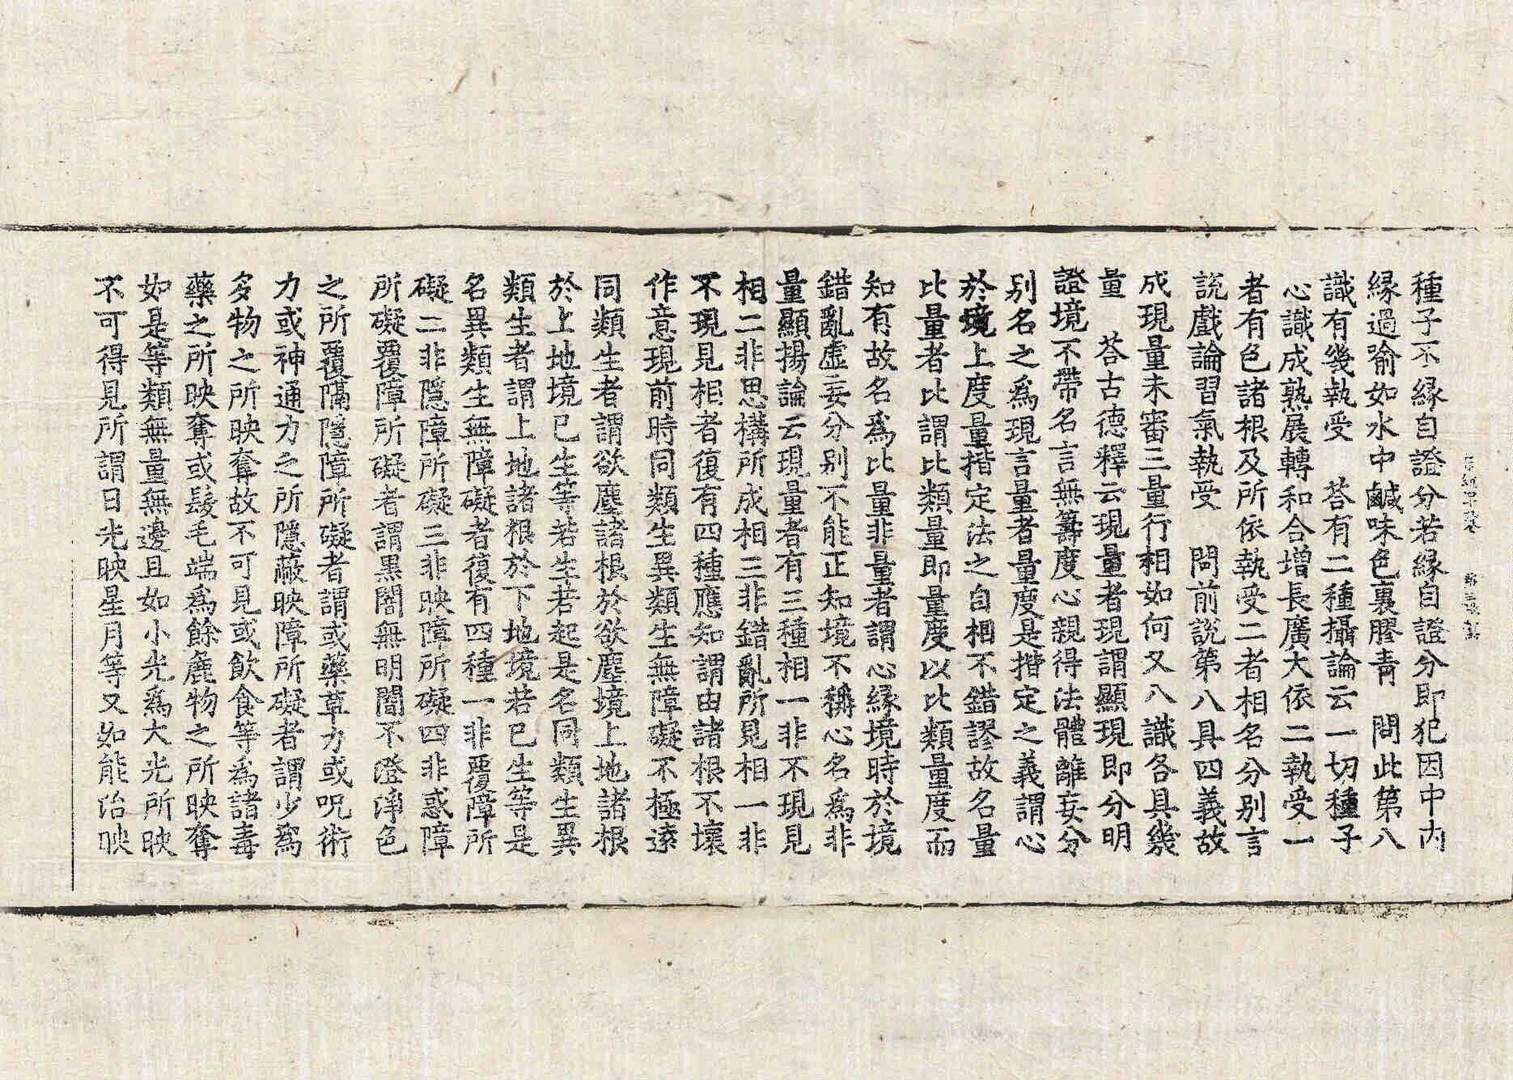 種子不緣自證分若緣自證分即犯因中內
緣過喻如水中鹹味色裏膠青　問此第八
識有幾執受　荅有二種攝論云一切種子
心識成熟展轉和合增長廣大依二執受一
者有色諸根及所依執受二者相名分別言
說戲論習氣執受　問前說第八具四義故
成現量未審三量行相如何又八識各具幾
量　荅古德釋云現量者現謂顯現即分明
證境不帶名言無籌度心親得法體離妄分
別名之為現言量者量度是揩定之義謂心
於境上度量揩定法之自相不錯謬故名量
比量者比謂比類量即量度以比類量度而
知有故名為比量非量者謂心緣境時於境
錯亂虛妄分別不能正知境不稱心名為非
量顯揚論云現量者有三種相一非不現見
相二非思構所成相三非錯亂所見相一非
不現見相者復有四種應知謂由諸根不壞
作意現前時同類生異類生無障礙不極遠
同類生者謂欲塵諸根於欲塵境上地諸根
於上地境已生等若生若起是名同類生異
類生者謂上地諸根於下地境若已生等是
名異類生無障礙者復有四種一非覆障所
礙二非隱障所礙三非映障所礙四非惑障
所礙覆障所礙者謂黑闇無明闇不澄淨色
之所覆隔隱障所礙者謂或藥草力或呪術
力或神通力之所隱蔽映障所礙者謂少為
多物之所映奪故不可見或飲食等為諸毒
藥之所映奪或髮毛端為餘麁物之所映奪
如是等類無量無邊且如小光為大光所映
不可得見所謂日光映星月等又如能治映